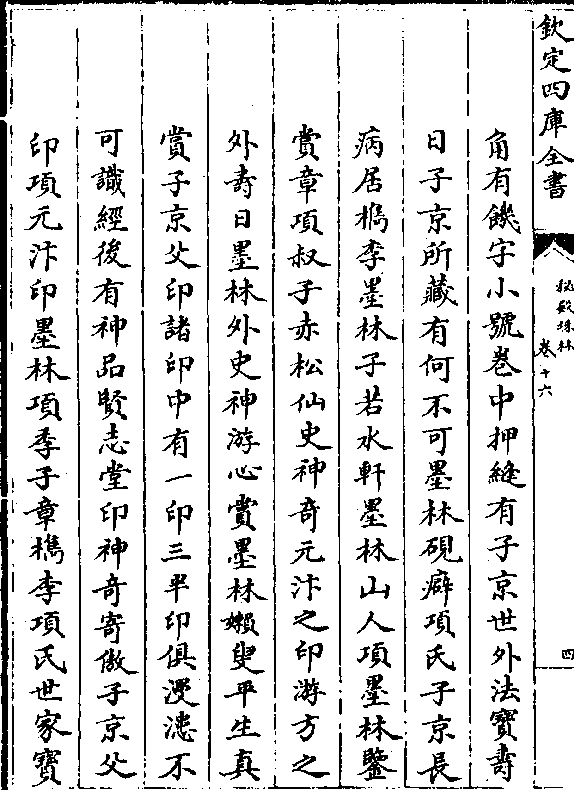 欽定四庫全書
秘殿珠林
卷十六
四
角有饑字小號卷中押縫有子京世外法寶壽
日子京所藏有何不可墨林硯癖項氏子京長
病居檇李墨林子若水軒墨林山人項墨林鑒
賞章項叔子赤松仙史神奇元汴之印游方之
外壽日墨林外史神游心賞墨林嬾叟平生真
賞子京父印諸印中有一印三半印俱漫漶不
可識經後有神品賢志堂印神奇寄傲子京父
印項元汴印墨林項季子章檇李項氏世家寶